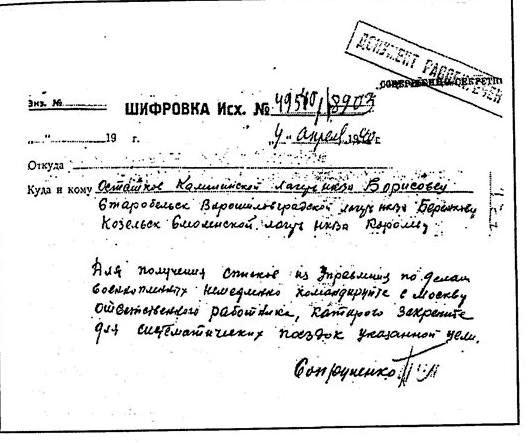 ДОКУМЕНТ РАССЕКРЕЧЕН
СОВЕРШЕННО СЕКРЕТНО
Экз. №
ШИФРОВКА Исх. №
„ “ 19 г. „4“ апреля 1940 г.
Откуда
Куда и кому Осташков Калининской лагерь нквд Борисовцу
Старобельск Ворошиловградской лагерь нквд Бережкову
Козельск Смоленской лагерь нквд Королеву
Для получения списков из Управления по делам
военнопленных немедленно командируйте с Москву
ответственного работника, которого закрепите
для систематических поездок указанной цели.
Сопруненко